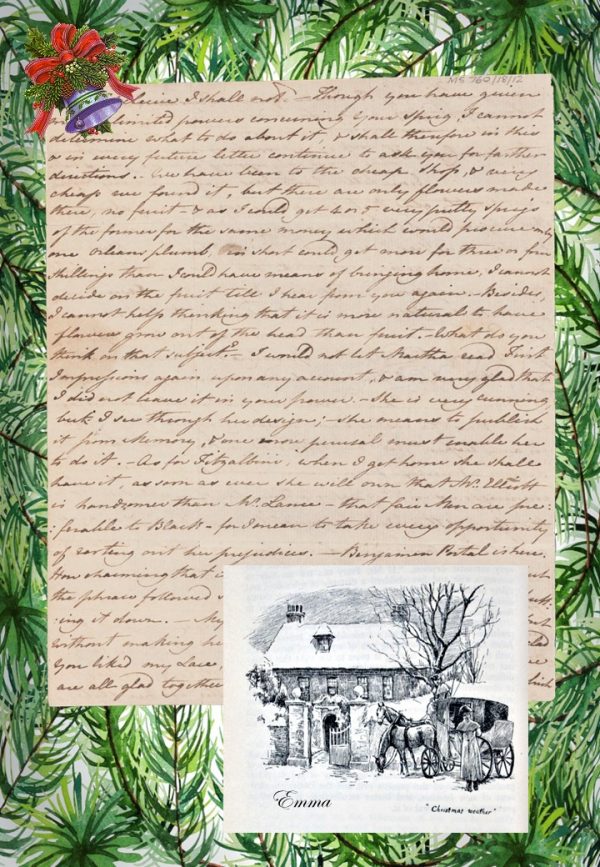 MS 760/18/12
I shall not. – Though you have given
powers concerning your Sprig, I cannot
determine what to do about it, & shall therefore in this
& in every future letter continue to ask you for farther
directions. – We have been to the cheap Shop, & very
cheap we found it, but there are only flowers made
there, no fruit – & as I could get 4 or 5 very pretty sprigs
of the former for the same money which would procure only
one Orleans plumb, in short could get more for three or four
Shillings than I could have means of bringing home, I cannot
decide on the fruit till I hear from you again. – Besides,
I cannot help thinking that it is more natural to have
flowers grow out of the head than fruit. – What do you
think on that subject? – I would not let Martha read First
Impressions again upon any account, & am very glad that
I did not leave it in your power. – She is very cunning
but I see through her design; – she means to publish
it from Memory, & one more perusal must enable her
to do it. – As for Fitzalbini, when I get home she shall
have it, as soon as ever she will own that Mr. Elliott
is handsomer than Mr. Lance – that fair Men are pre
:ferable to Black – for I mean to take every opportunity
of rooting out her prejudices. – Benjamin Portal is here.
How charming that
the phrase followed
:ing it down. – My
without making
You liked my Lace,
are all glad together
Emma
"Christmas weather"